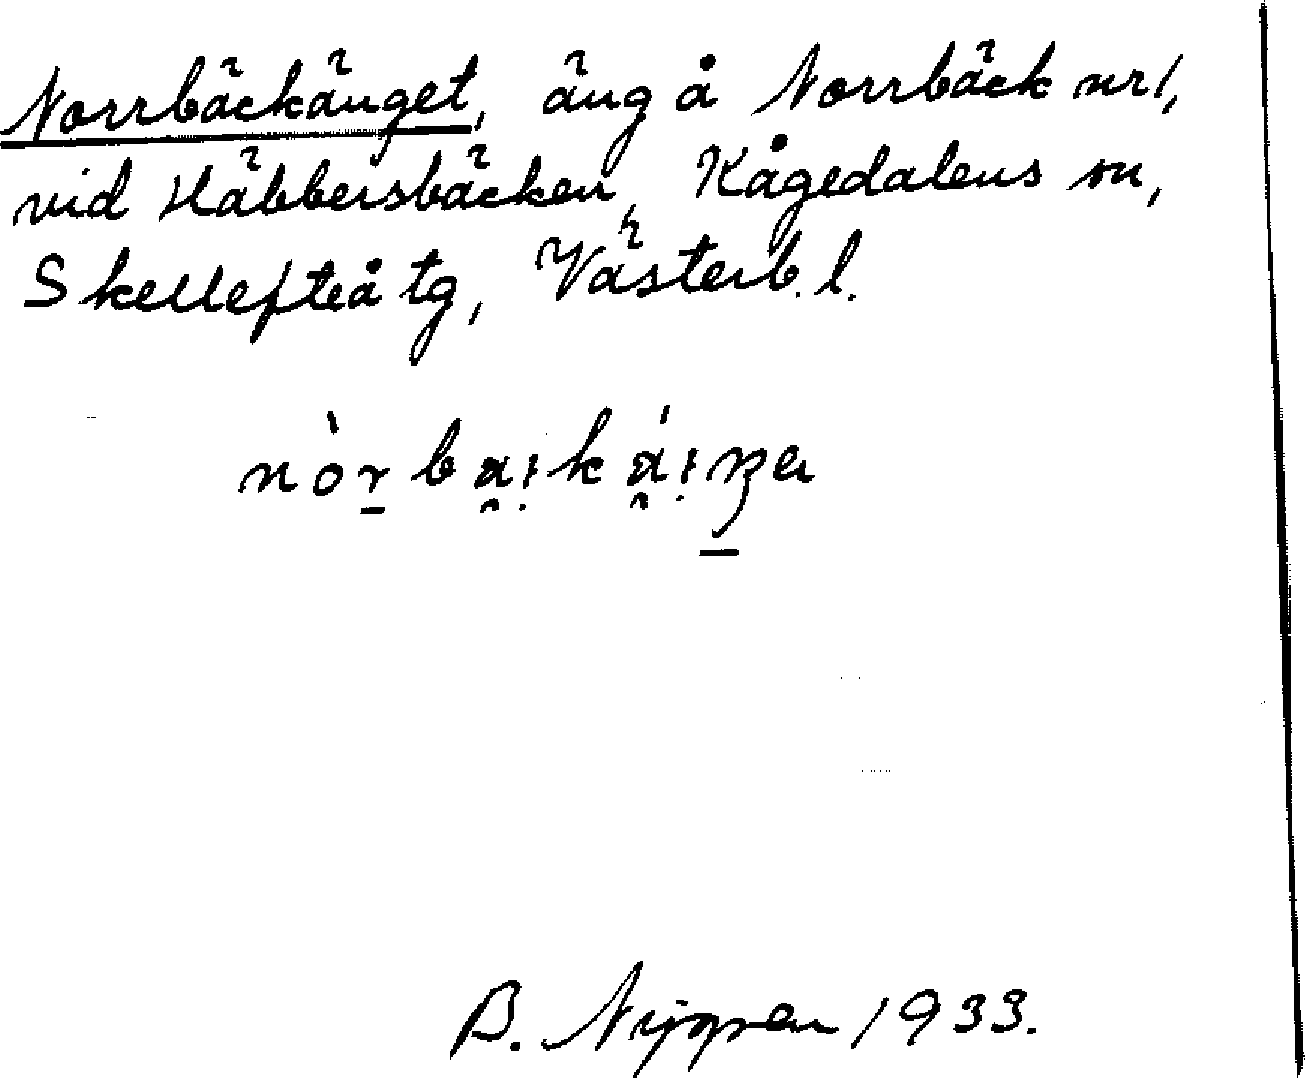 Norrbäckänget, äng å Norrbäck nr 1,
vid Häbbersbäcken, Kågedalens sn,
Skellefteå tg, Västerb. l.
B. Nygren 1933.